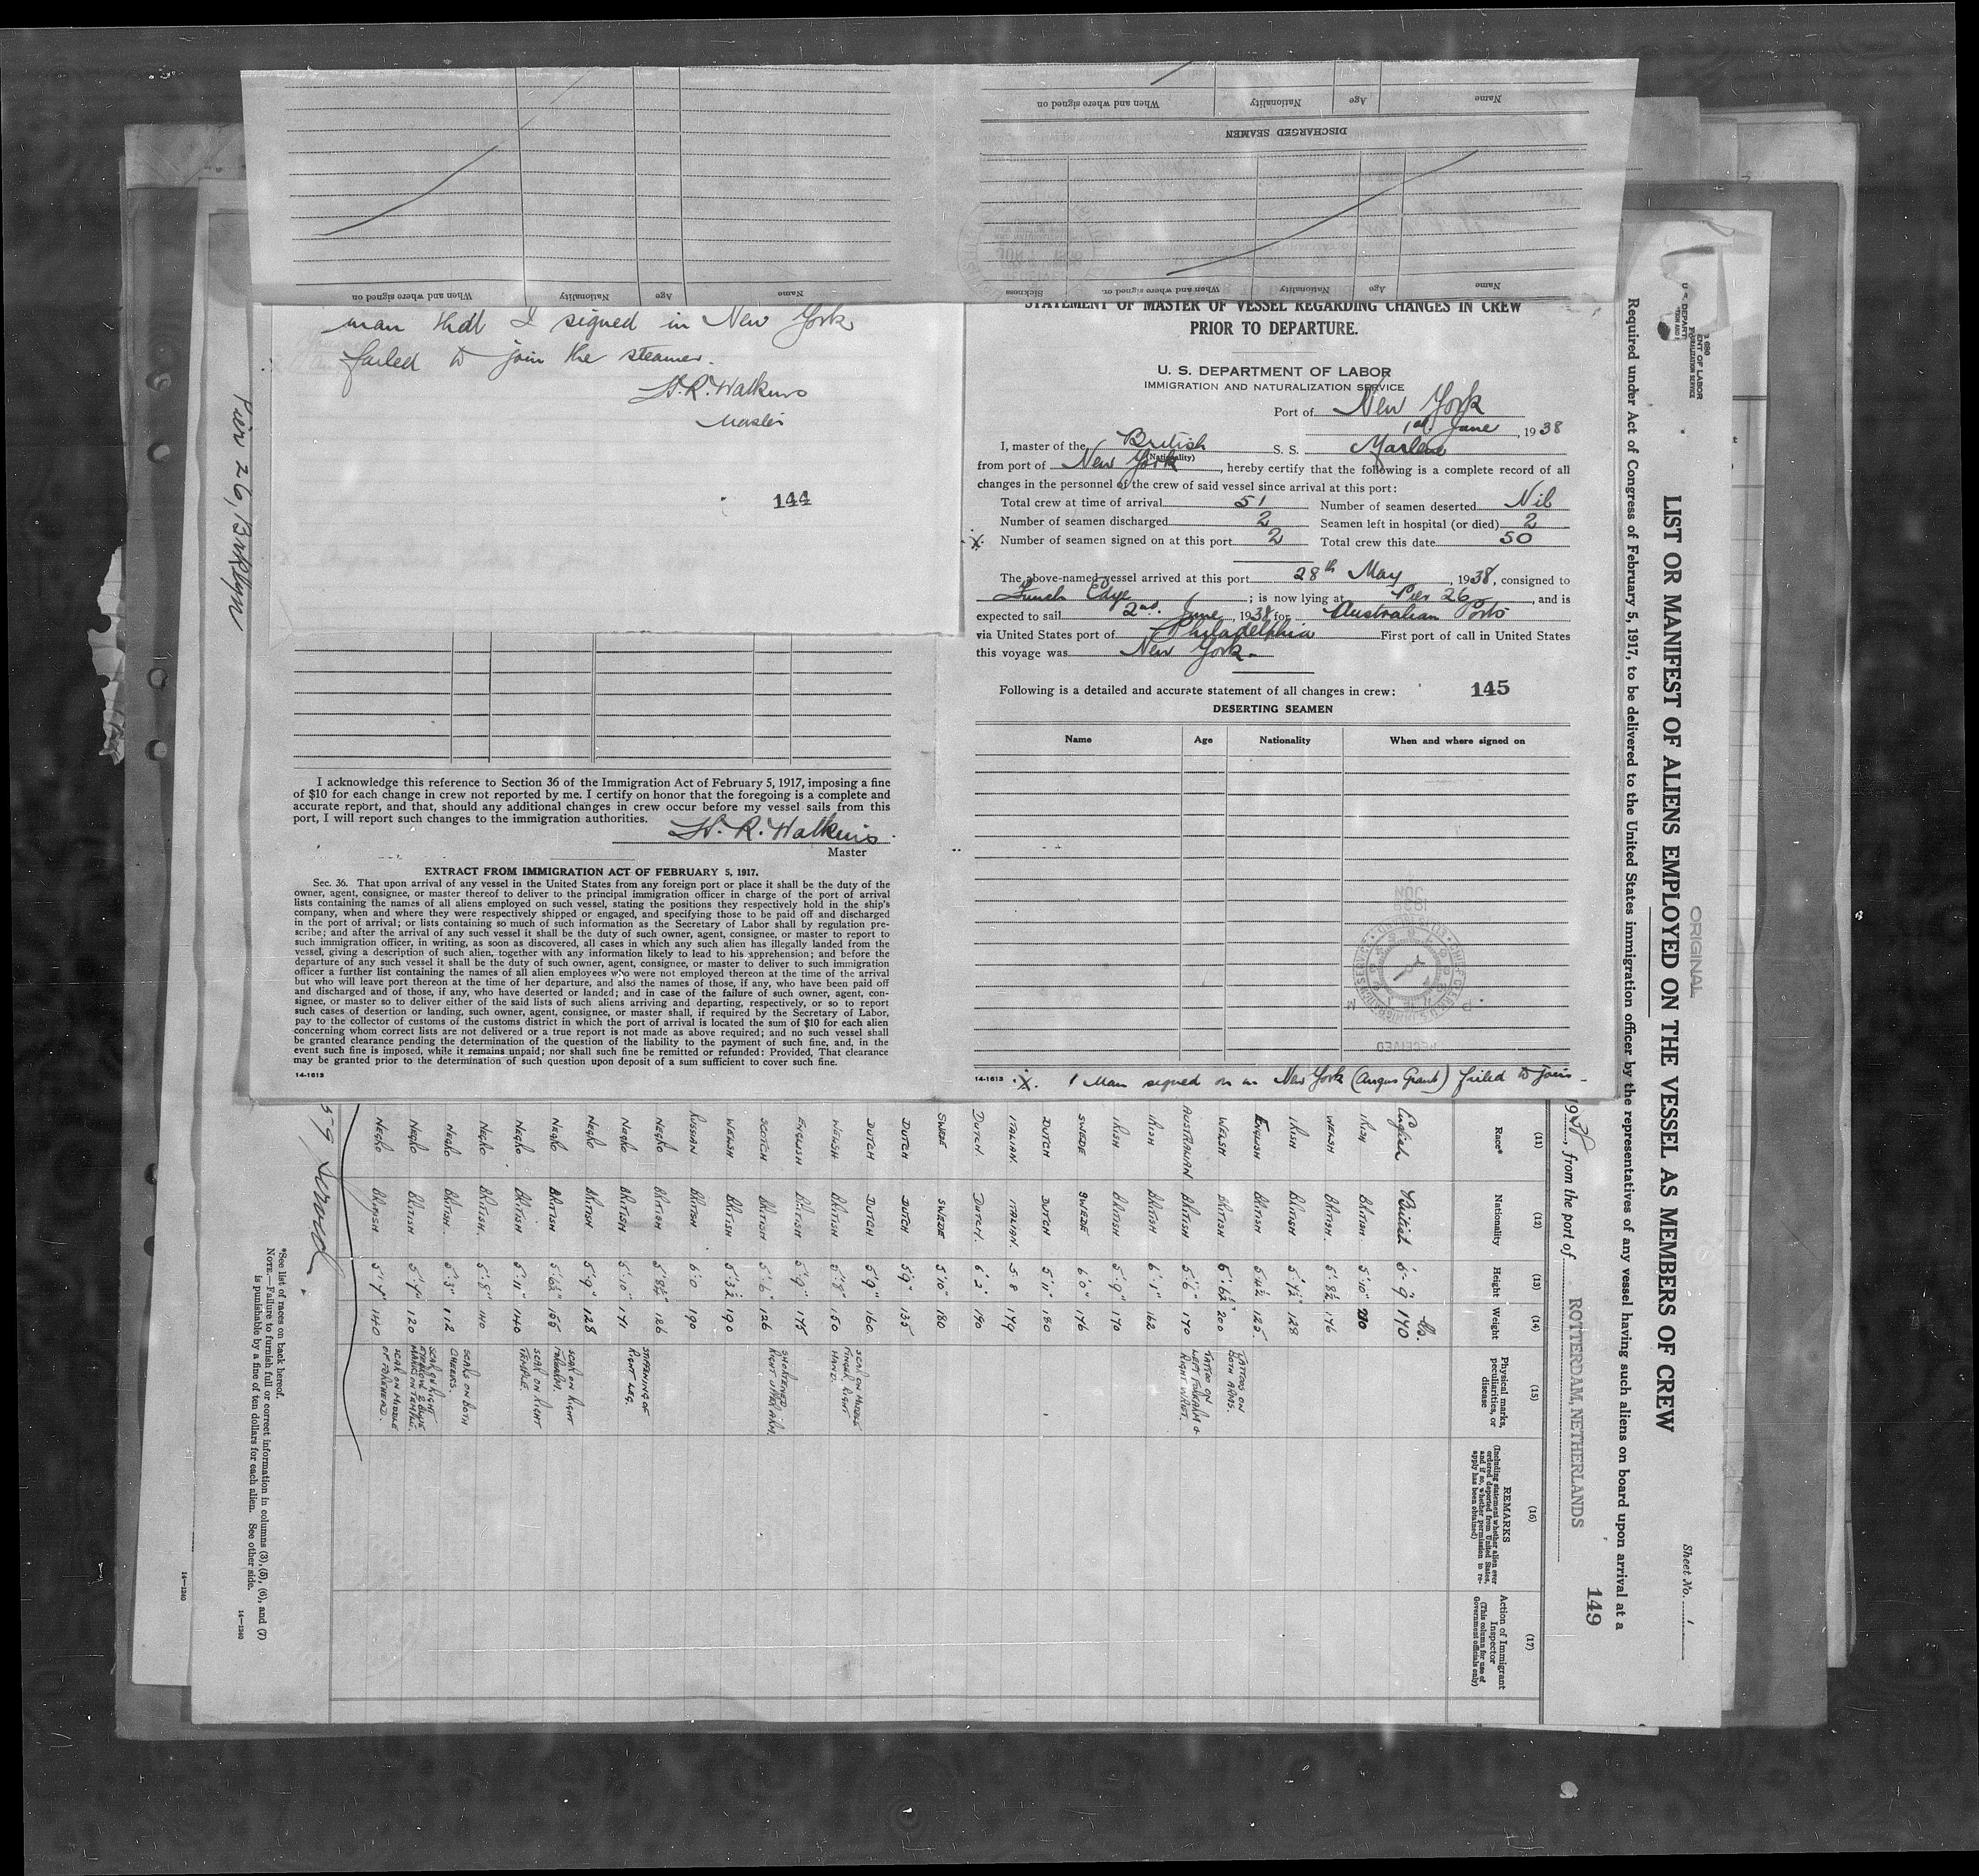 Name Age Nationality When and where signed on
DISCHARGED SEAMEN
Name Age Nationality When and where signed on
Name Age Nationality When and where signed or. Sickness
man that I signed in New York
failed to join the steamer.
H. R. Watkins
Master
144
I acknowledge this reference to Section 36 of the Immigration Act of February 5, 1917, imposing a fine
of $10 for each change in crew not reported by me. I certify on honor that the foregoing is a complete and
accurate report, and that, should any additional changes in crew occur before my vessel sails from this
port, I will report such changes to the immigration authorities.
H. R. Watkins
Master
EXTRACT FROM IMMIGRATION ACT OF FEBRUARY 5, 1917.
Sec. 36. That upon arrival of any vessel in the United States from any foreign port or place it shall be the duty of the
owner, agent, consignee, or master thereof to deliver to the principal immigration officer in charge of the port of arrival
lists containing the names of all aliens employed on such vessel, stating the positions they respectively hold in the ship's
company, when and where they were respectively shipped or engaged, and specifying those to be paid off and discharged
in the port of arrival; or lists containing so much of such information as the Secretary of Labor shall by regulation pre-
scribe; and after the arrival of any such vessel it shall be the duty of such owner, agent, consignee, or master to report to
such immigration officer, in writing, as soon as discovered, all cases in which any such alien has illegally landed from the
vessel, giving a description of such alien, together with any information likely to lead to his apprehension; and before the
departure of any such vessel it shall be the duty of such owner, agent, consignee, or master to deliver to such immigration
officer a further list containing the names of all alien employees who were not employed thereon at the time of the arrival
but who will leave port thereon at the time of her departure, and also the names of those, if any, who have been paid off
and discharged and of those, if any, who have deserted or landed; and in case of the failure of such owner, agent, con-
signee, or master so to deliver either of the said lists of such aliens arriving and departing, respectively, or so to report
such cases of desertion or landing, such owner, agent, consignee, or master shall, if required by the Secretary of Labor,
pay to the collector of customs of the customs district in which the port of arrival is located the sum of $10 for each alien
concerning whom correct lists are not delivered or a true report is not made as above required; and no such vessel shall
be granted clearance pending the determination of the question of the liability to the payment of such fine, and, in the
event such fine is imposed, while it remains unpaid; nor shall such fine be remitted or refunded: Provided, That clearance
may be granted prior to the determination of such question upon deposit of a sum sufficient to cover such fine.
14-1613
STATEMENT OF MASTER OF VESSEL REGARDING CHANGES IN CREW
PRIOR TO DEPARTURE.
U. S. DEPARTMENT OF LABOR
IMMIGRATION AND NATURALIZATION SERVICE
Port of New York
1st June, 1938
I, master of the British S. S. Marlene
(Nationality)
from port of New York, hereby certify that the following is a complete record of all
changes in the personnel of the crew of said vessel since arrival at this port:
Total crew at time of arrival 51 Number of seamen deserted Nil
Number of seamen discharged 2 Seamen left in hospital (or died) 2
X. Number of seamen signed on at this port 2 Total crew this date 50
The above-named vessel arrived at this port 28th May, 1938, consigned to
Funch Edye; is now lying at Pier 26, and is
expected to sail 2nd. June, 1938 for Australian Ports
via United States port of Philadelphia First port of call in United States
this voyage was New York.
Following is a detailed and accurate statement of all changes in crew: 145
DESERTING SEAMEN
Name Age Nationality When and where signed on
RECEIVED
14-1613 X. 1 Man signed on in New York (Angus Grant) failed to join
Pier 26, Bklyn
ORIGINAL
Sheet No. 1
LIST OR MANIFEST OF ALIENS EMPLOYED ON THE VESSEL AS MEMBERS OF CREW
Required under Act of Congress of February 5, 1917, to be delivered to the United States immigration officer by the representatives of any vessel having such aliens on board upon arrival at a
149
1938, from the port of ROTTERDAM, NETHERLANDS
(11) (12) (13) (14) (15) (16) (17)
Race* Nationality Height Weight Physical marks, peculiarities, or disease REMARKS (Including statement whether alien ever ordered deported from United States, and if so, whether permission to re-apply has been obtained) Action of Immigrant Inspector (This column for use of Government officials only)
lbs.
English British 5-9 170
IRISH BRITISH 5'10" 210
WELSH BRITISH. 5'8½ 176
IRISH BRITISH 5'7½" 128
ENGLISH BRITISH 5'4½ 125
WELSH BRITISH 5'6½" 200 TATTOOS ON BOTH ARMS.
AUSTRALIAN BRITISH 5'6" 170 TATTOO ON LEFT FOREARM & RIGHT WRIST.
IRISH BRITISH 6'1" 162
IRISH BRITISH 5'9" 170
SWEDE SWEDE 6'0" 176
DUTCH DUTCH 5'11" 180
ITALIAN. ITALIAN. 5 8 179
DUTCH DUTCH. 6'2" 190
SWEDE SWEDE 5'10" 180
DUTCH DUTCH 5'9" 135
DUTCH DUTCH 5'9" 160
WELSH BRITISH 5'8" 150 SCAR ON MIDDLE FINGER RIGHT HAND.
ENGLISH BRITISH 5'9" 175
SCOTCH BRITISH 5'6" 126 SHORTENED RIGHT UPPER ARM.
WELSH BRITISH 5'3½ 190
RUSSIAN BRITISH 6'0" 190
NEGRO BRITISH 5'8½" 126
NEGRO BRITISH 5'10" 171 STIFFENING OF RIGHT LEG.
NEGRO BRITISH. 5'9" 128
NEGRO BRITISH 5'6½" 155 SCAR ON RIGHT FOREARM.
NEGRO BRITISH 5'11" 140 SCAR ON RIGHT TEMPLE.
NEGRO BRITISH. 5'8" 140
NEGRO BRITISH. 5'3" 112 SCARS ON BOTH CHEEKS.
NEGRO BRITISH 5'7" 120 SCAR ON RIGHT MARKS ON TEMPLE.
NEGRO BRITISH 5'7" 140 SCAR ON MIDDLE OF FOREHEAD.
*See list of races on back hereof.
NOTE.—Failure to furnish full or correct information in columns (3), (5), (6), and (7)
is punishable by a fine of ten dollars for each alien. See other side.
14—1240
14—1240